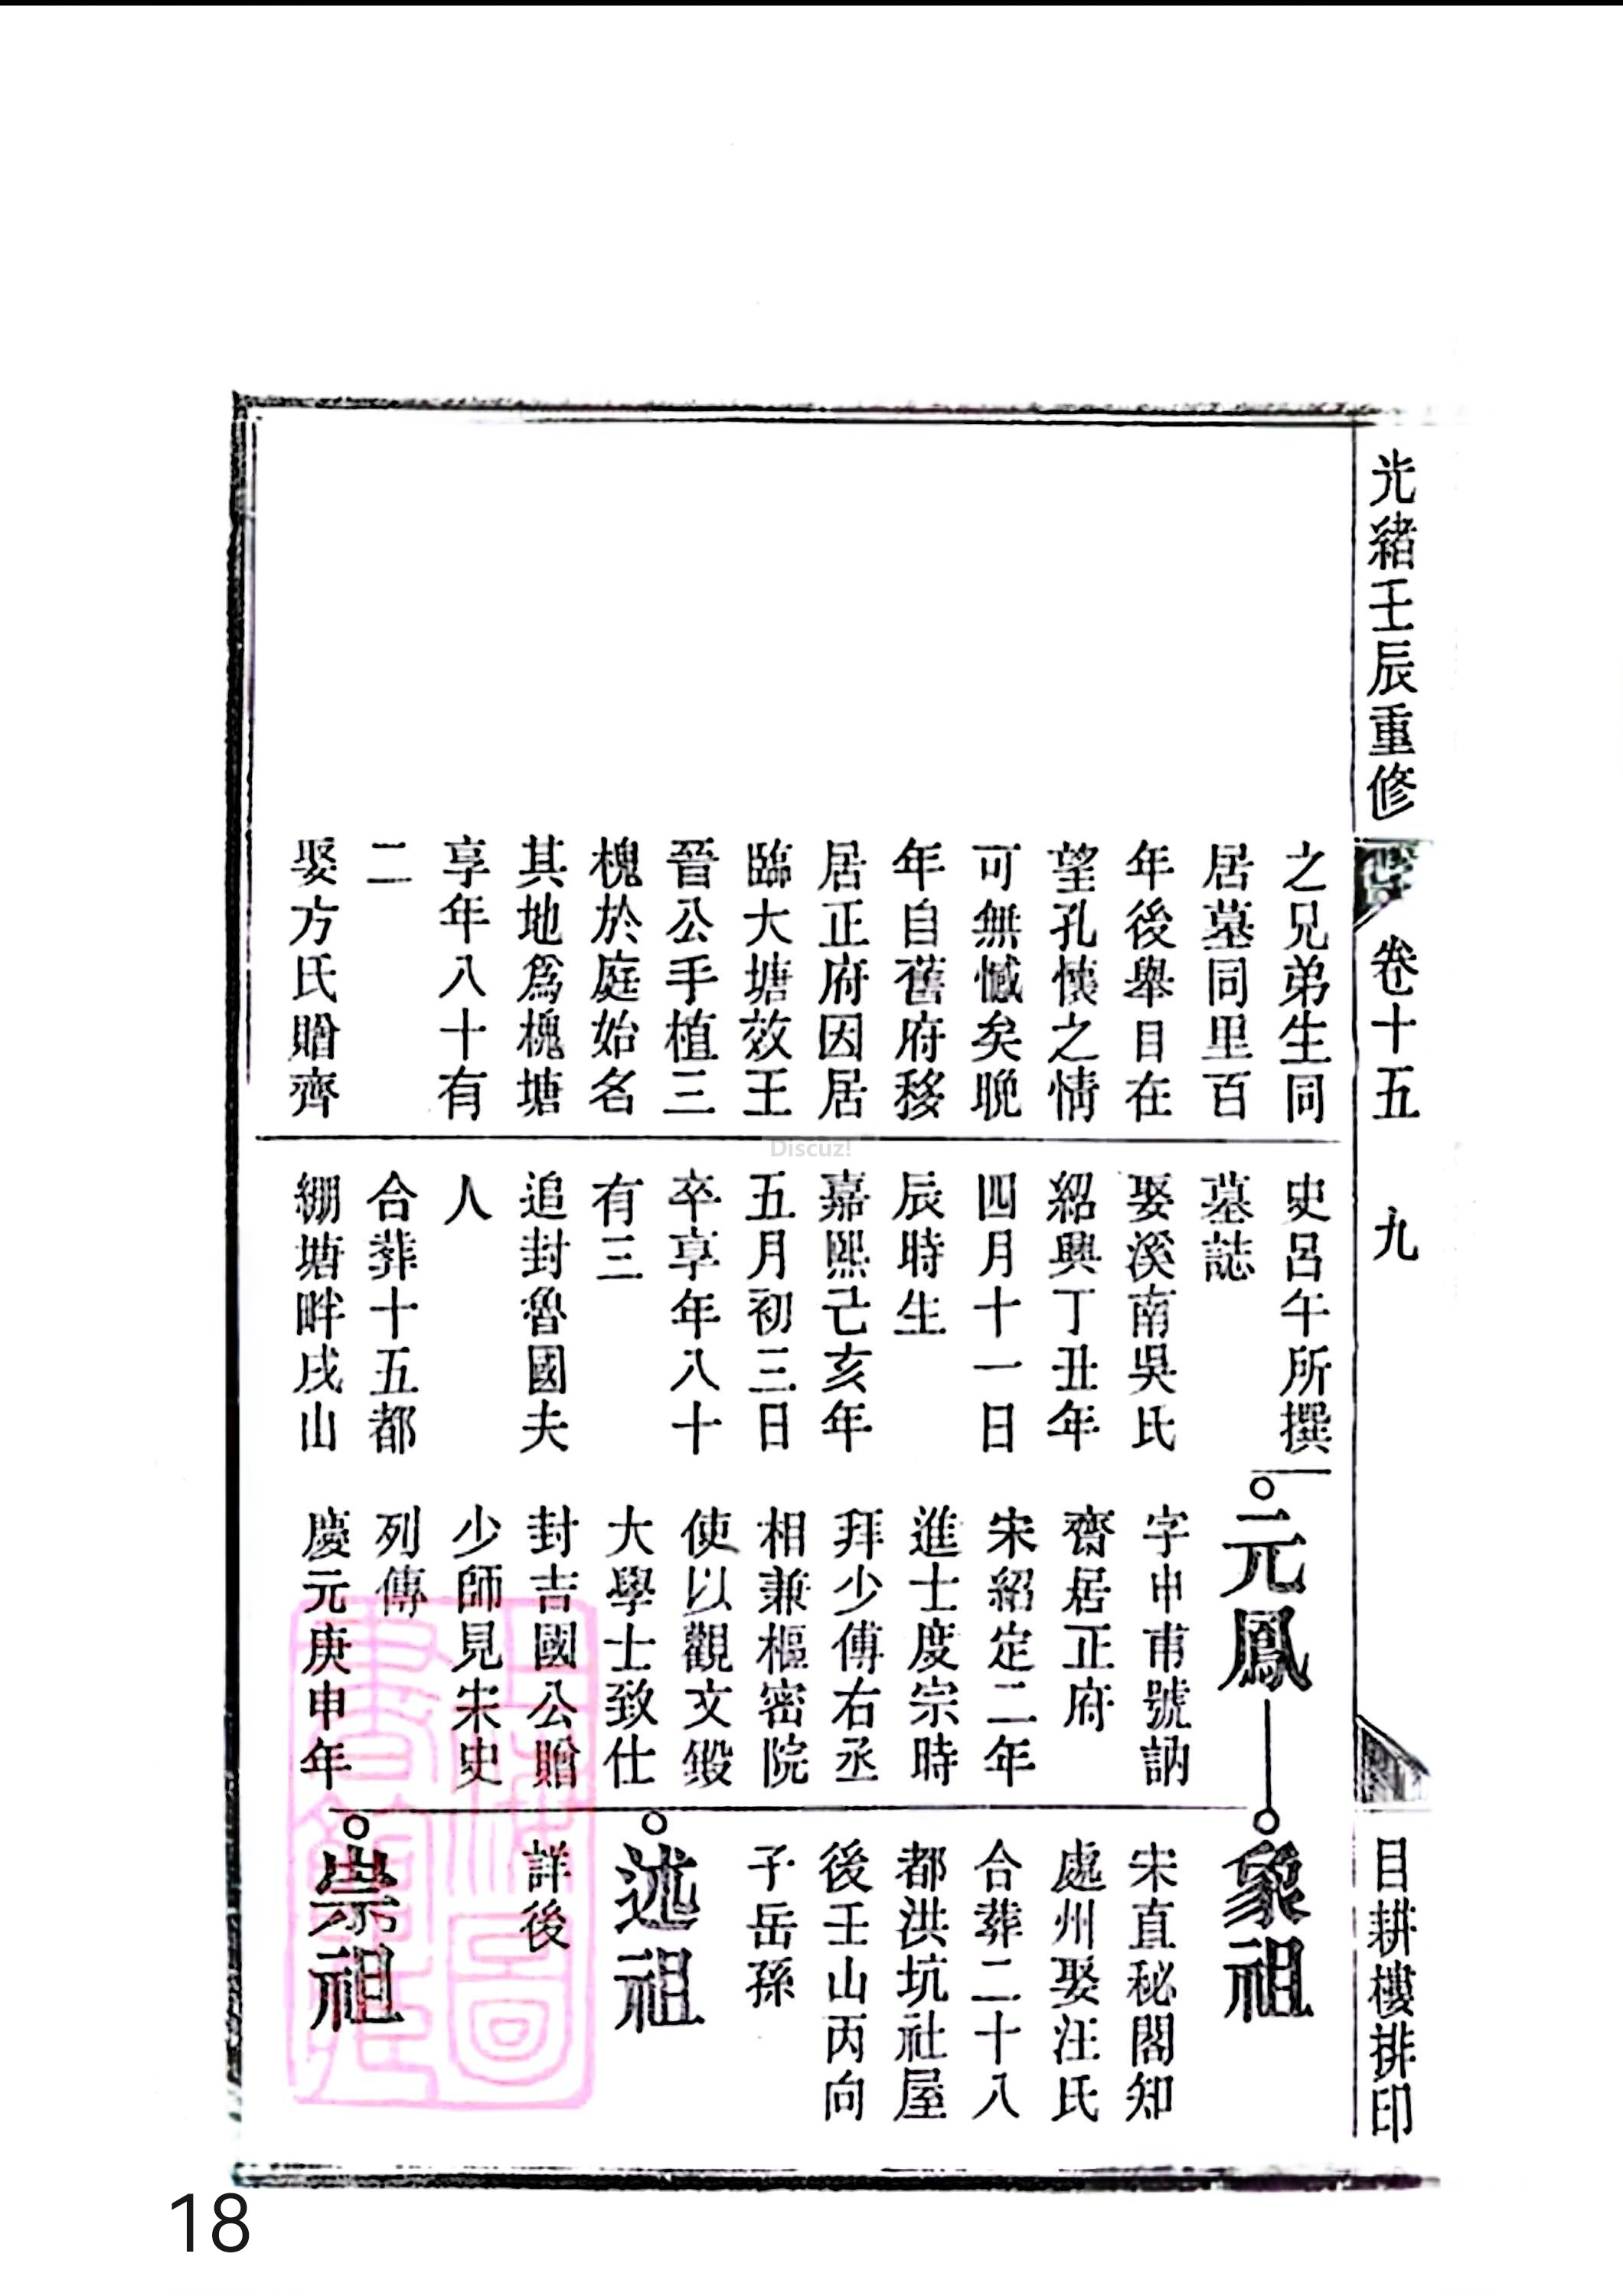 光緒壬辰重修
卷十五
九
目耕樓排印
之兄弟生同
居墓同里百
年後舉目在
望孔懷之情
可無憾矣晚
年自舊府移
居正府因居
臨大塘效王
晉公手植三
槐於庭始名
其地爲槐塘
享年八十有
二
娶方氏贈齊
史呂午所撰
墓誌
娶溪南吳氏
紹興丁丑年
四月十一日
辰時生
嘉熙己亥年
五月初三日
卒享年八十
有三
追封魯國夫
人
合葬十五都
綳塘畔戌山
元鳳
字申甫號訥
齋居正府
宋紹定二年
進士度宗時
拜少傅右丞
相兼樞密院
使以觀文殿
大學士致仕
封吉國公贈
少師見宋史
列傳
慶元庚申年
象祖
宋直秘閣知
處州娶汪氏
合葬二十八
都洪坑社屋
後壬山丙向
子岳孫
述祖
詳後
崇祖
Discuz!
18